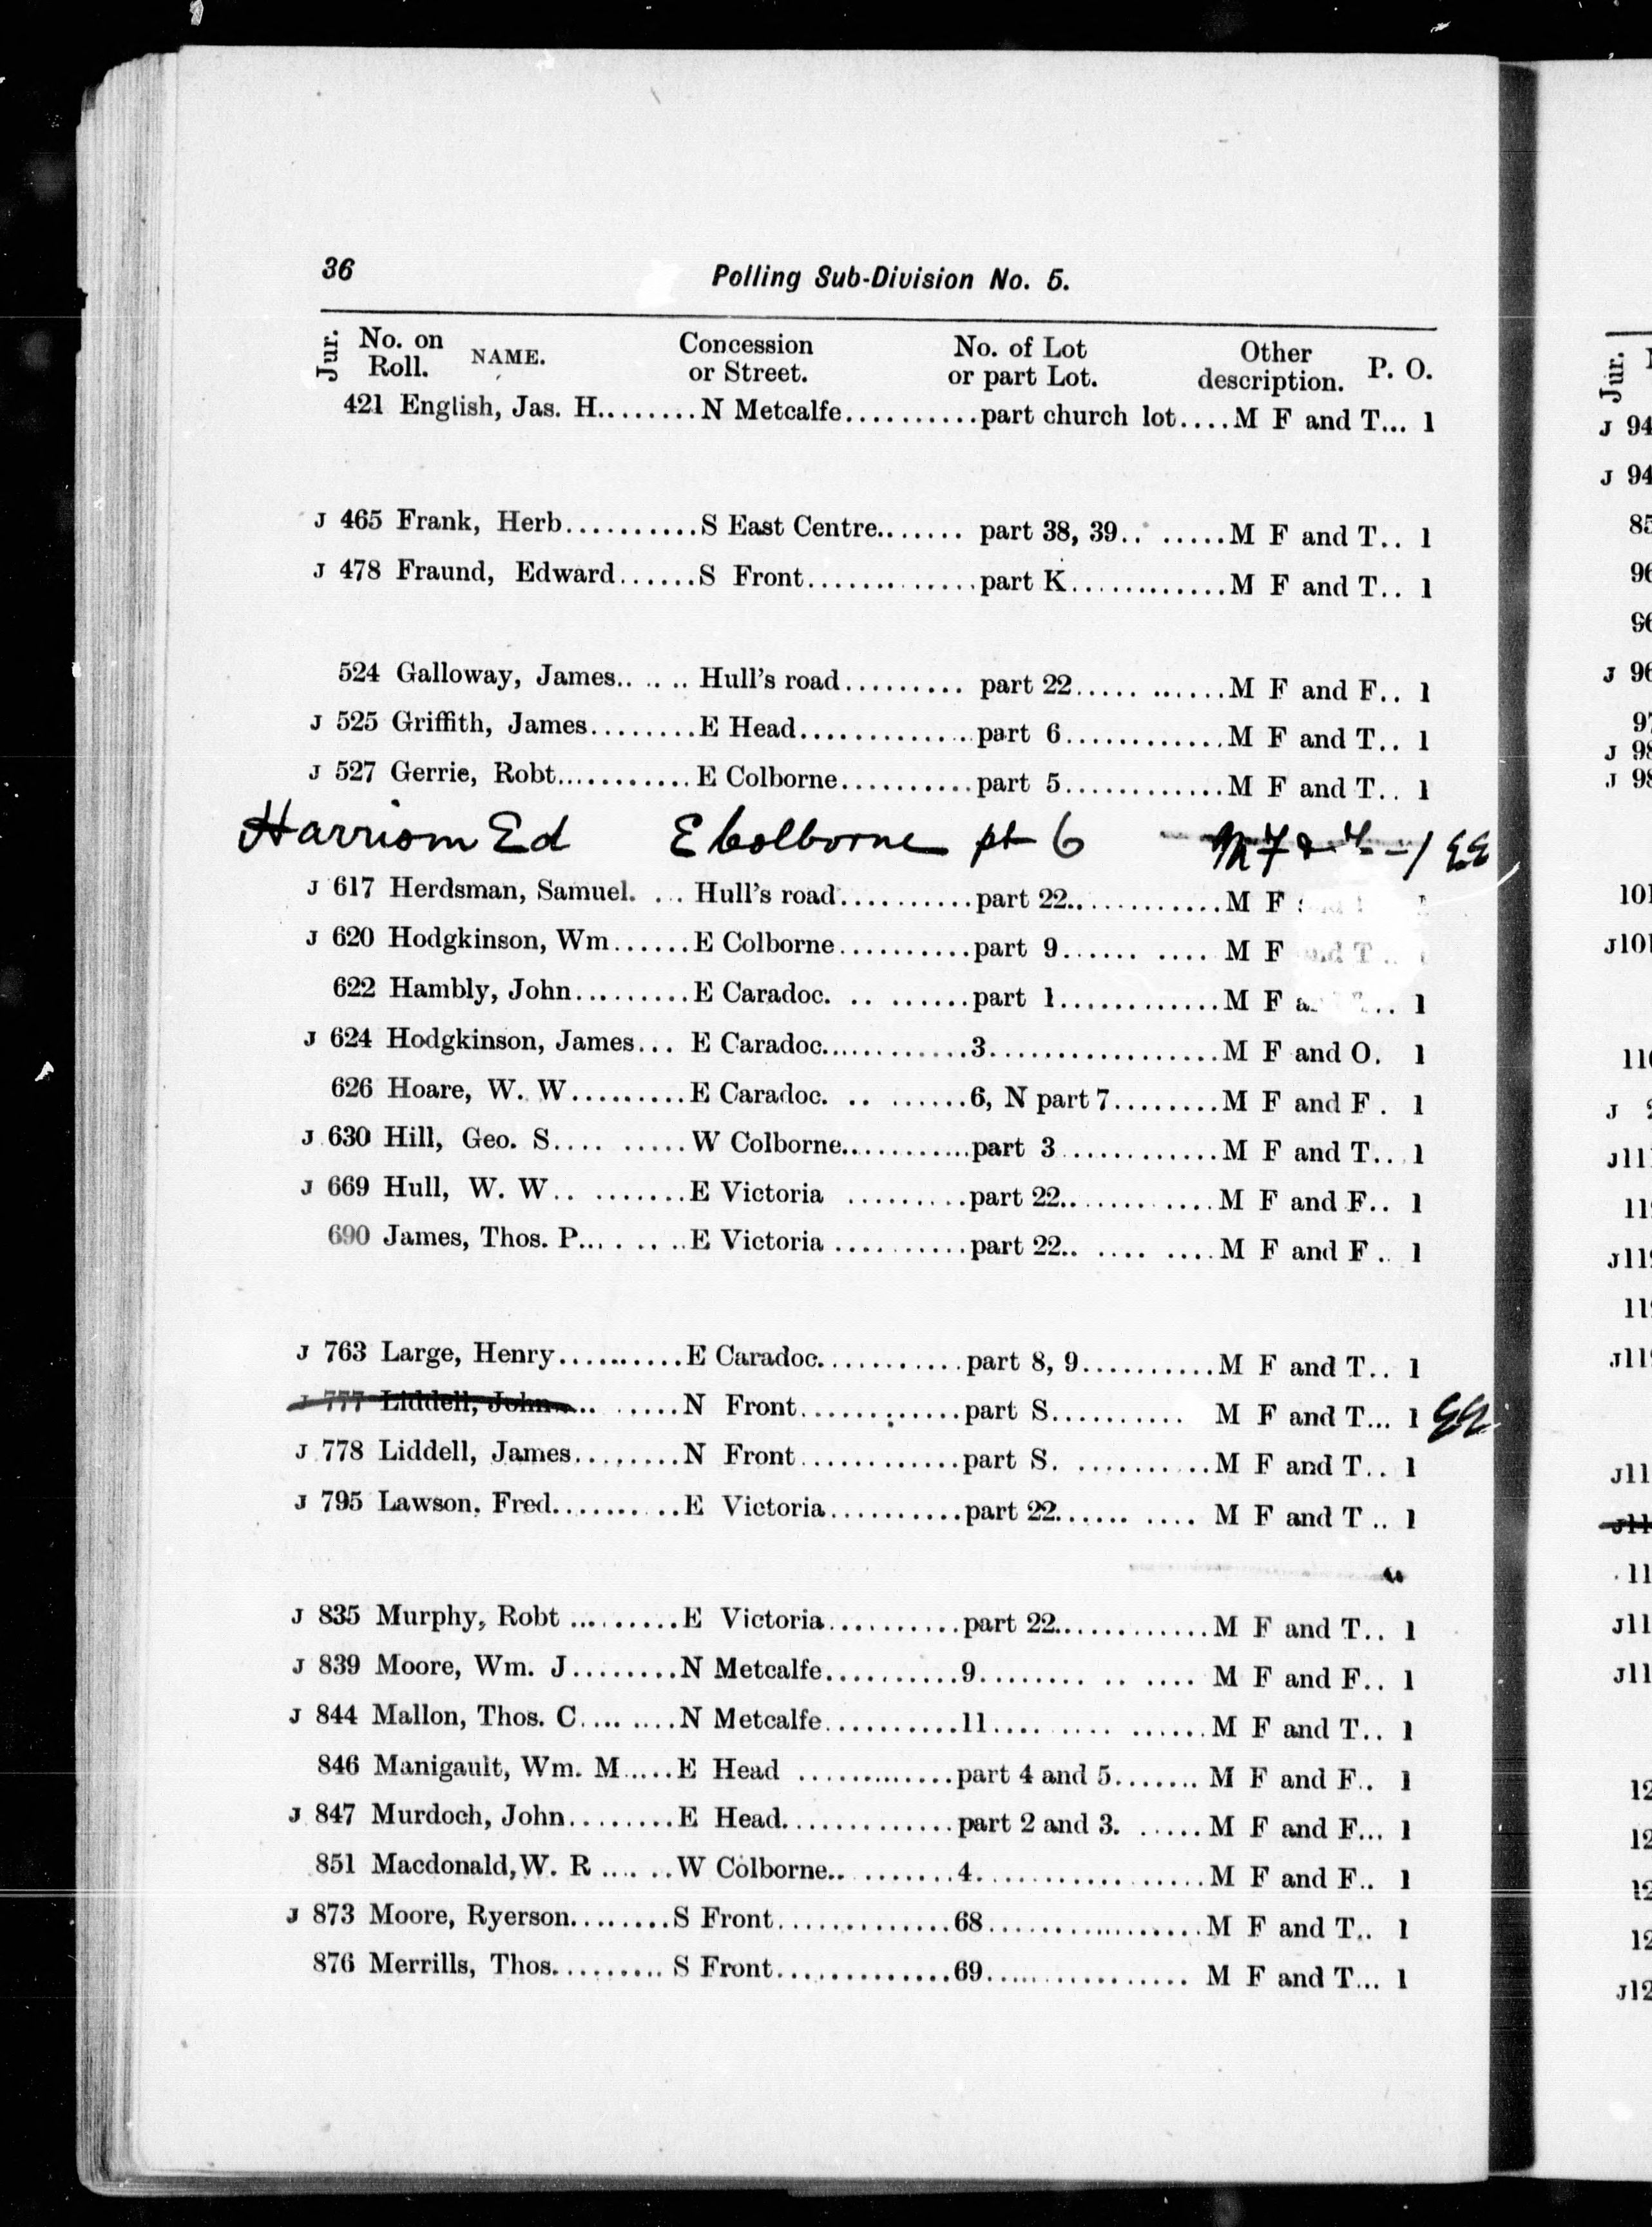 36 Polling Sub-Division No. 5.
Jur. No. on Roll. NAME. Concession or Street. No. of Lot or part Lot. Other description. P. O.
421 English, Jas. H........N Metcalfe...........part church lot....M F and T... 1
J 465 Frank, Herb..........S East Centre....... part 38, 39.. ......M F and T.. 1
J 478 Fraund, Edward......S Front..............part K.............M F and T.. 1
524 Galloway, James.. .. .. Hull's road......... part 22...... ......M F and F.. 1
J 525 Griffith, James........E Head..............part 6.............M F and T.. 1
J 527 Gerrie, Robt...........E Colborne..........part 5.............M F and T.. 1
Harrison Ed E Colborne pt 6 M F & T - - 1 EE
J 617 Herdsman, Samuel. ... Hull's road..........part 22.............M F
J 620 Hodgkinson, Wm......E Colborne..........part 9...... .... M F and T.. 1
622 Hambly, John.........E Caradoc. .. .......part 1.............M F
J 624 Hodgkinson, James... E Caradoc.............3...................M F and O. 1
626 Hoare, W. W.........E Caradoc. .. .......6, N part 7........M F and F . 1
J 630 Hill, Geo. S.... .....W Colborne............part 3 ............M F and T.. 1
J 669 Hull, W. W.. ........E Victoria .........part 22.. .... ....M F and F.. 1
690 James, Thos. P... . .. ..E Victoria ..........part 22.. .... ....M F and F .. 1
J 763 Large, Henry..........E Caradoc............part 8, 9..........M F and T.. 1
J 777 Liddell, John..... .....N Front.............part S.......... M F and T... 1 EE
J 778 Liddell, James.........N Front............part S. ...........M F and T.. 1
J 795 Lawson, Fred...........E Victoria..........part 22...... .... M F and T .. 1
J 835 Murphy, Robt .........E Victoria..........part 22.............M F and T.. 1
J 839 Moore, Wm. J........N Metcalfe..........9........ .. .... M F and F.. 1
J 844 Mallon, Thos. C.... ....N Metcalfe..........11......... ......M F and T.. 1
846 Manigault, Wm. M.....E Head ............part 4 and 5....... M F and F.. 1
J 847 Murdoch, John........E Head.............part 2 and 3. .....M F and F... 1
851 Macdonald, W. R ... .. ..W Colborne.. ........4.................M F and F.. 1
J 873 Moore, Ryerson........S Front.............68..................M F and T.. 1
876 Merrills, Thos......... S Front.............69................ M F and T... 1
Jur.
J 94
J 94
J 96